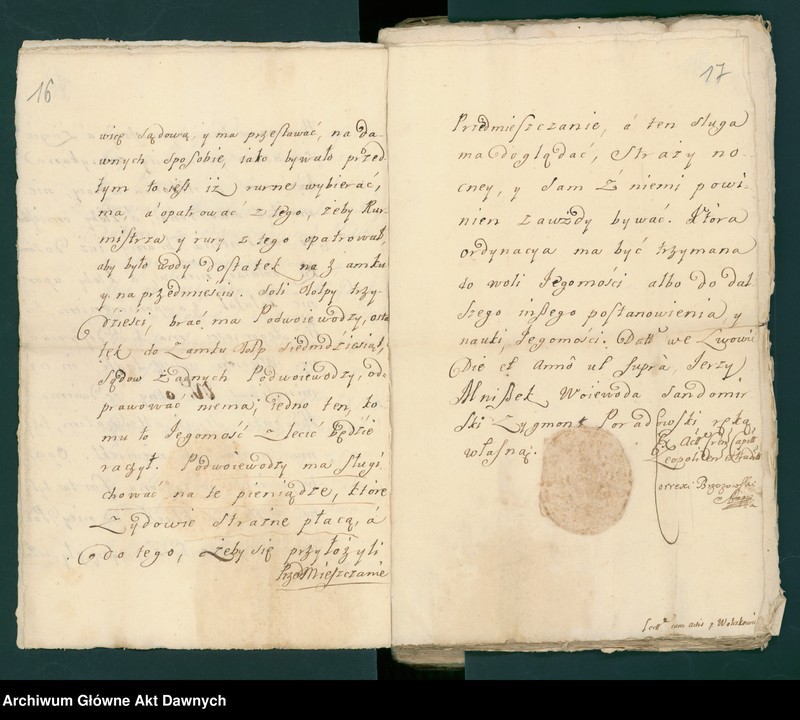 16
więc sądową, y ma przestawać, na da
wnych sposobie, iako bywało przed
tym to iest iż rurne wybierać,
ma, a opatrować z tego, żeby Rur
mistrza y rury z tego opatrował,
aby było wody dostatek, na Zamku
y na przedmieściu. Soli Tołpy trzy-
dzieści, brać, ma Podwoiewodzy, osta
tek do Zamku Tołp siedmdziesiąt,
Sądow Żadnych Podwoiewodzy, od
prawować niema, iedno ten, ko
mu to Jegomość zlecić będzie
raczył. Podwoiewodzy ma sługi
chować na te pieniądze, które
Zydowie strażne płacą, a
do tego, żeby się przyłożyli
Przedmieszczanie
17
Przedmieszczanie, a ten sługa
ma doglądać, Straży no-
cney, y sam z niemi powi-
nien zawżdy bywać. Która
ordynacya ma być trzymana
do woli Jegomości albo do dal
szego inszego postanowienia y
nauki, Jegomości. Datt we Lwowie
Die et Anno ut supra, Jerzy
Mniszek Woiewoda Sandomir
ski Zygmont Poradowski ręką
własną.
Ex Actis Cren Capitt
Leopolien extradit
Correxi Brzozowski
Lectt cum actis p
Archiwum Główne Akt Dawnych